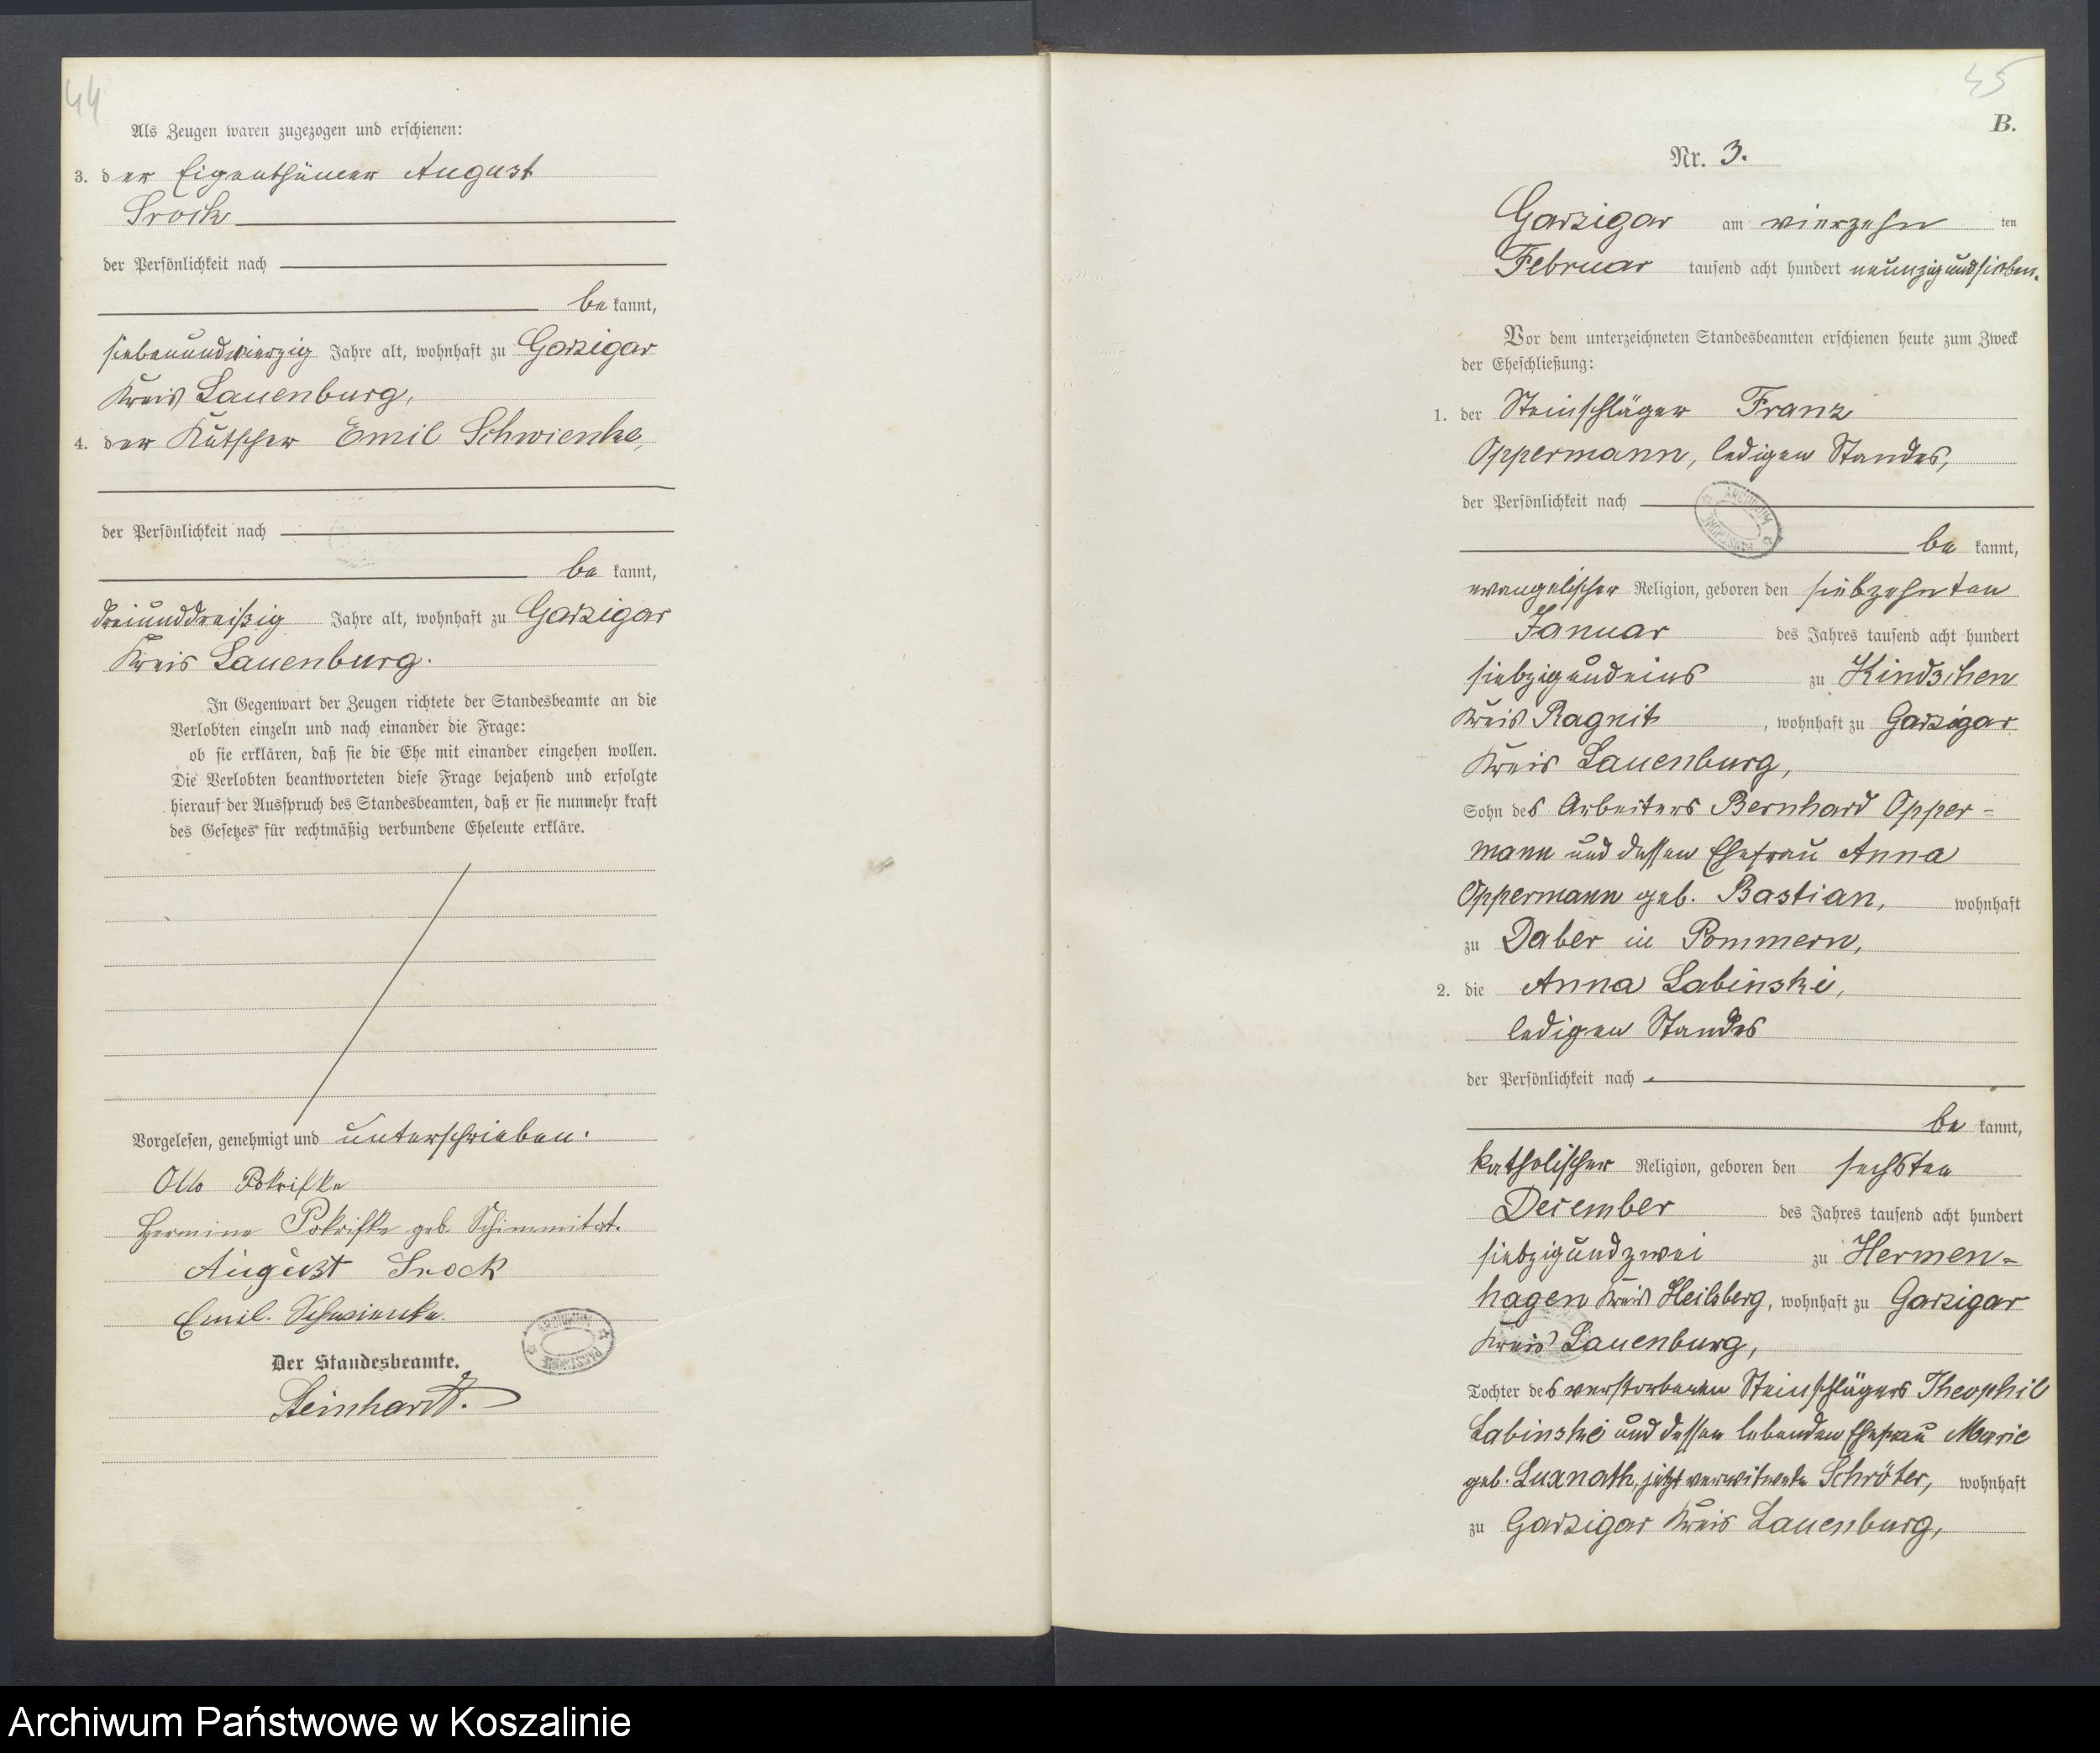 44
Als Zeugen waren zugezogen und erschienen:
3. der Eigenthümer August
Srock
der Persönlichkeit nach
be kannt,
siebenundvierzig Jahre alt, wohnhaft zu Garzigar
Kreis Lauenburg,
4. der Kutscher Emil Schwienke,
der Persönlichkeit nach
be kannt,
dreiunddreißig Jahre alt, wohnhaft zu Garzigar
Kreis Lauenburg.
In Gegenwart der Zeugen richtete der Standesbeamte an die
Verlobten einzeln und nach einander die Frage:
ob sie erklären, daß sie die Ehe mit einander eingehen wollen.
Die Verlobten beantworteten diese Frage bejahend und erfolgte
hierauf der Ausspruch des Standesbeamten, daß er sie nunmehr kraft
des Gesetzes für rechtmäßig verbundene Eheleute erkläre.
Vorgelesen, genehmigt und unterschrieben.
Otto Pokriefke
Hermine Pokriefke geb. Schimmitat.
August Srock
Emil. Schwienke.
ARCHIWUM PAŃSTWOWE
Der Standesbeamte.
Steinhardt.
45
B.
Nr. 3.
Garzigar am vierzehn ten
Februar tausend acht hundert neunzigundsieben.
Vor dem unterzeichneten Standesbeamten erschienen heute zum Zweck
der Eheschließung:
1. der Steinschläger Franz
Oppermann, ledigen Standes,
der Persönlichkeit nach
ARCHIWUM PAŃSTWOWE
be kannt,
evangelischer Religion, geboren den siebzehnten
Januar des Jahres tausend acht hundert
siebzigundeins zu Kindschen
Kreis Ragnit, wohnhaft zu Garzigar
Kreis Lauenburg,
Sohn des Arbeiters Bernhard Opper=
mann und dessen Ehefrau Anna
Oppermann geb. Bastian, wohnhaft
zu Daber in Pommern,
2. die Anna Labinski,
ledigen Standes
der Persönlichkeit nach
be kannt,
katholischer Religion, geboren den sechsten
December des Jahres tausend acht hundert
siebzigundzwei zu Hermen=
hagen Kreis Heilsberg, wohnhaft zu Garzigar
Kreis Lauenburg,
Tochter des verstorbenen Steinschlägers Theophil
Labinski und dessen lebenden Ehefrau Marie
geb. Luxnath, jetzt verwitwete Schröter, wohnhaft
zu Garzigar Kreis Lauenburg,
Archiwum Państwowe w Koszalinie